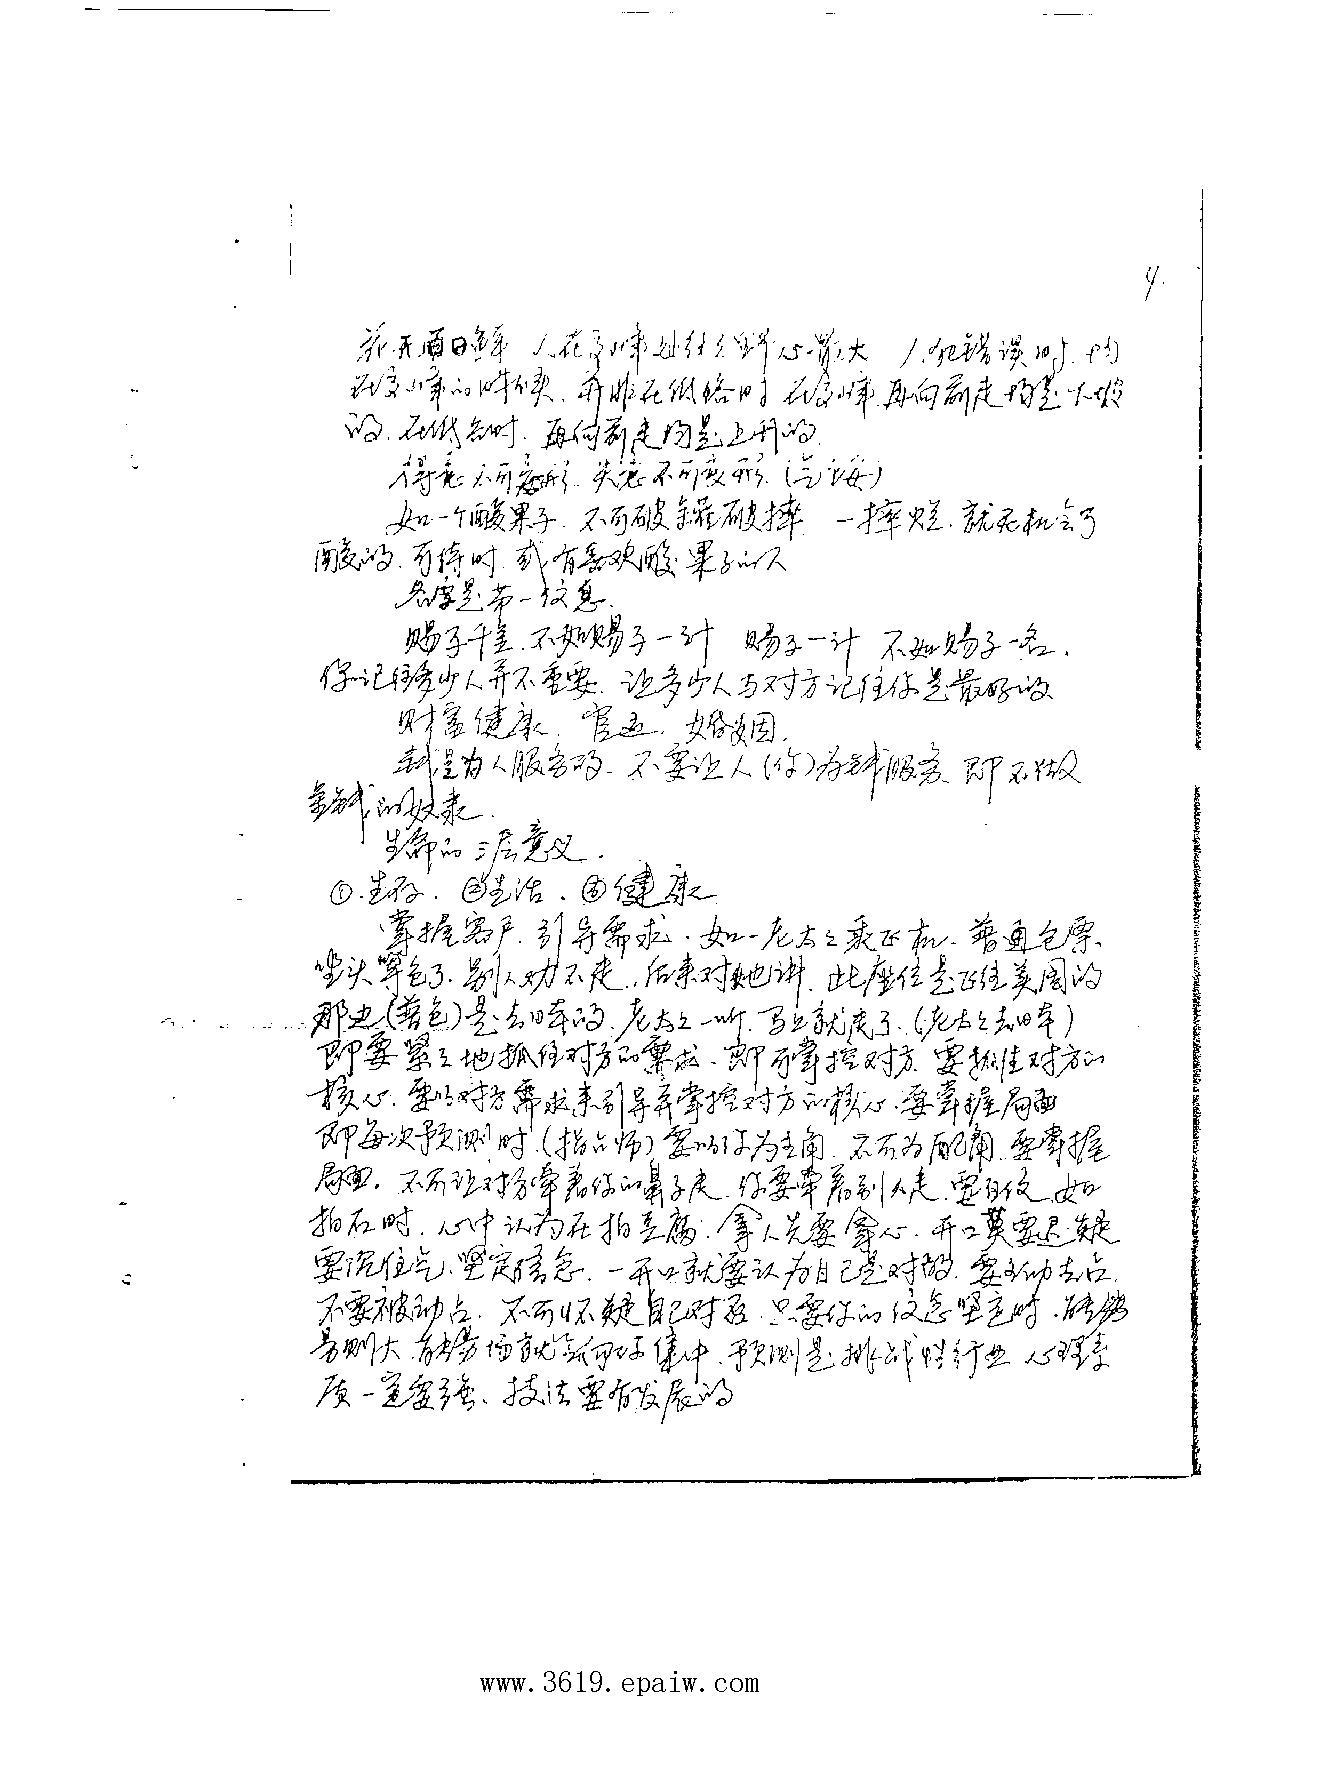 4.
花开百日鲜 人在高峰 野心最大 人犯错误时.均
在高峰的时候.并非在低谷时 在高峰再向前走均是下坡
的.在低谷时.再向前走均是上升的.
得意不可忘形.失意不可变形.
如一个酸果子.不可破罐破摔 一摔烂.就无机会了
酸的.可待时.或有喜欢酸果子的人
名字是第一信息.
赐子千金.不如赐子一计 赐子一计 不如赐子一名.
你记住多少人并不重要.让多少人与对方记住你是最好的
财富健康.官运.婚姻.
钱是为人服务的.不要让人(你)为钱服务.即不做
金钱的奴隶.
生命的三层意义.
①.生存.②生活.③健康
掌握客户.引导需求.如一老太太乘飞机.普通仓票.
坐头等仓了.别人劝不走.后来对她讲.此座位是飞往美国的
那边(普仓)是去日本的.老太太一听.马上就走了.(老太太去日本)
即要紧紧地抓住对方的需求.即可掌控对方.要抓住对方的
核心.要以对方需求来引导并掌控对方的核心.要掌握局面
即每次预测时.(指点师)要以你为主角.不可为配角.要掌握
局面.不可让对方牵着你的鼻子走.你要牵着别人走.要自信.如
拍石时.心中认为在拍豆腐.拿人先要拿心.开口莫要迟疑
要沉住气.坚定信念.一开口就要认为自己是对的.要主动去占.
不要被动占.不可怀疑自己对否.只要你的信念坚定时.能
易则大 场就会向你集中.预测是挑战性行业 心理素
质一定要强.技法要有发展的
www.3619.epaiw.com